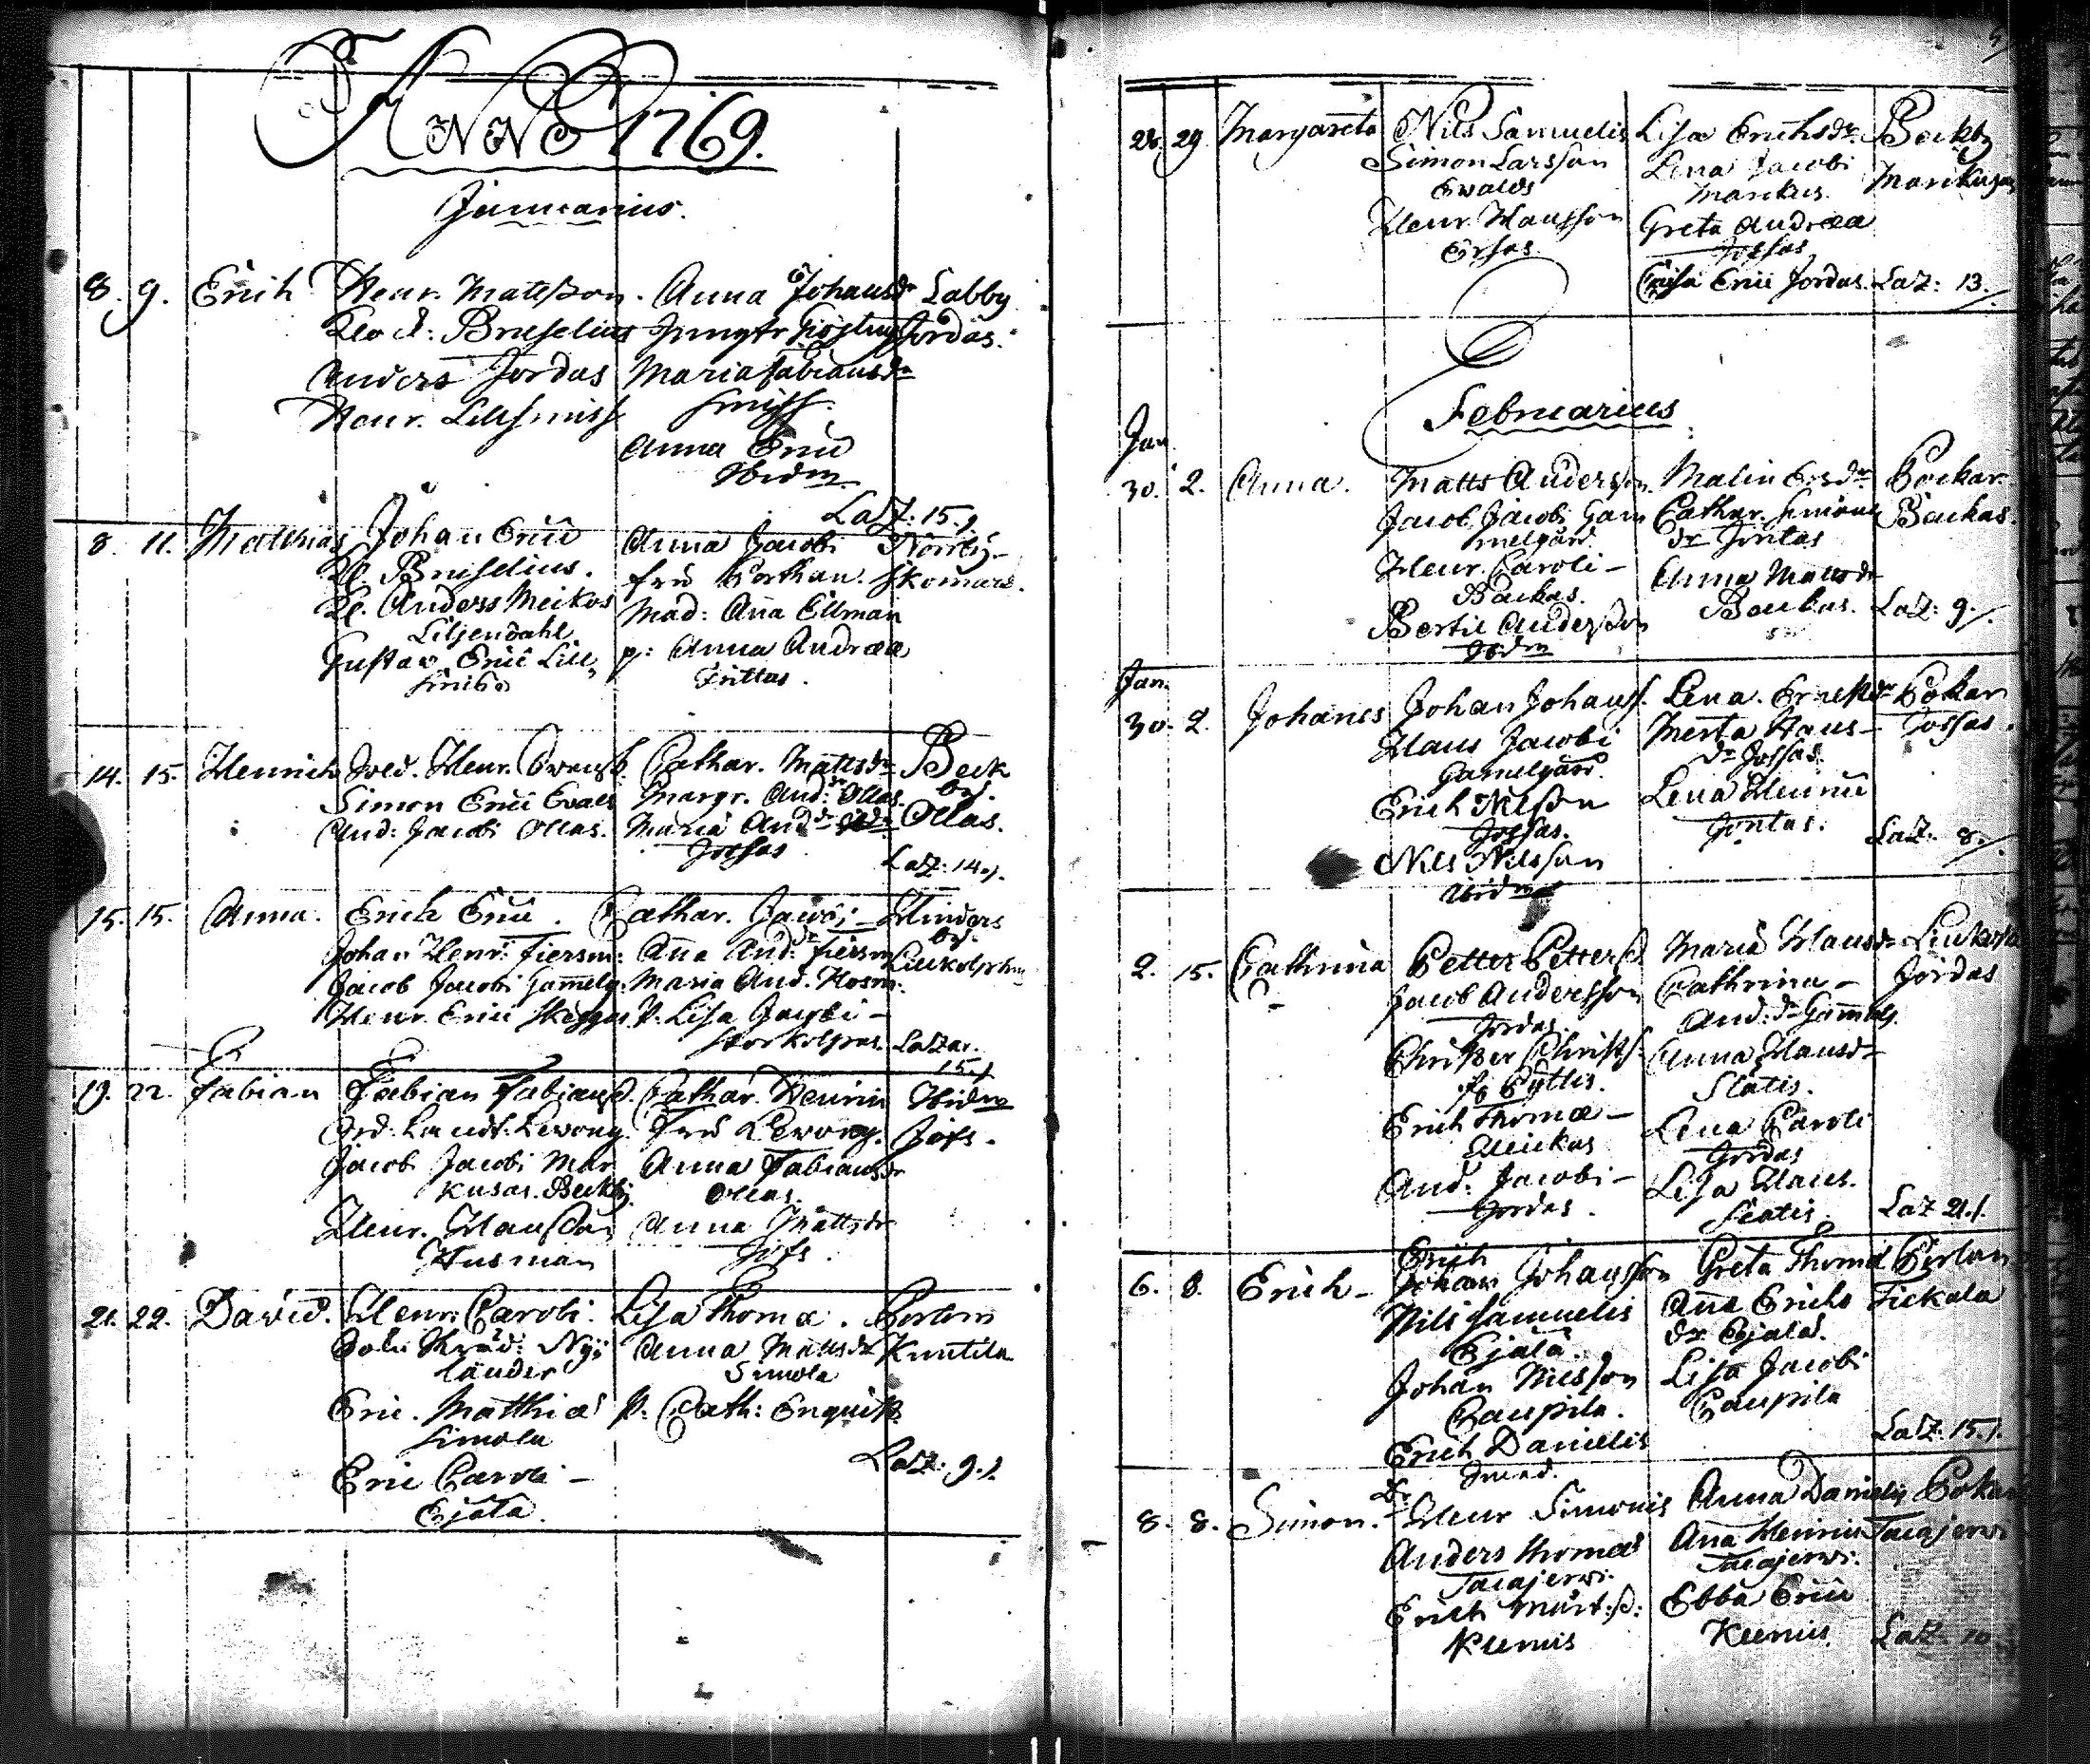 ANNO 1769.
Januarius.
8. 9. Erich Henr. Mattsson. Anna Johansdr Labby
Bruselius Jungfr Jordas.
Anders Jordas Maria Fabiansdr
Henr. Lillsmiss Smiss.
Anna Erici
Ibidm
Laz: 15.
8. 11. Matthias Johan Erici Anna Jacobi Norrby
Kl. Bruselius. fru Porthan. Skomars.
Kl. Anders Meikos Mad: Aña Ellman
Liljendahl. p: Anna Andreæ
Gustav Erici Lill Frittas.
14. 15. Henrich Sold. Henr. Cathar. Mattsdr Beck
by.
Simon Erici Evals Margr. And: dr Ollas. Ollas.
And: Jacobi Ollas. Maria And: dr
Jossas
Laz: 14.
15. 15. Anna. Erich Erici. Cathar. Jacobi Hinders
by.
Johan Henr: Fiersm: Aña And: dr Fiersm
Jacob Jacobi Gam̃elg. Maria And. Hosm.
Henr. Erici Skeppas p. Lisa Jacobi
Storkolpas. Laz ar.
15.
19. 22. Fabian Fabian Fabianss. Cathar. Henrici Ibidm
Fru Lewong. Jofs.
Jacob Jacobi Mar Anna Fabiansdr
kusas. Beckby Ollas.
Henr. Hansson Anna Mattsdr
Husman Jofs.
21. 22. David. Henr. Caroli. Lisa Thomæ. Perlom
Nyj Anna Mattsdr Kuntila
länder Simola
Eric. Matthiæ p. Cath: Enquist
Simola
Eric Caroli Laz: 9.
Ejala.
28. 29. Margareta Nils Samuelis Lisa Erichsdr Beckby
Simon Larsson Lena Jacobi Markusas
Evalds Markus.
Henr. Hansson Greta Andreæ
Ersas. Jossas
Erici Jordas. Laz: 13.
Februarius
Jan.
30. 2. Anna. Matts Andersson. Malin Ersdr Pockar
Jacob Jacobi Gam Cathar. Simons Backas.
melgård. dr Frittas
Henr. Caroli Anna Mattsdr
Backas. Backas. Laz: 9.
Bertil Andersson
Ibidm
Jan.
30. 2. Johanes Johan Johanss. Lena. Pokar
Hans Jacobi Merta Hans Jossas.
Gamelgård. dr Jossas.
Erich Nilsson Lena Henrici
Jossas. Laz. 8.
Nils Nilsson
Ibidm
2. 15. Cathrina Petter Petterss. Maria Hansdr
Jacob Andersson Cathrina Jordas
Jordas. And: dr Gam̃elg.
Christer Christs. Anna Hansdr
fr Pyttis. Slatis.
Erich Thomæ Lena Caroli
Meickas Jordas
And: Jacobi Lisa Hans.
Jordas. Slatis. Laz 21.
6. 8. Erich Erich
Johan Johansson Greta Thomæ Perlom
Nils Samuelis Aña Erichs Tiekala
Ejala. dr Ejala.
Johan Nilsson Lisa Jacobi
Caupila. Caupila
Erich Danielis Laz: 15.
8. 8. Simon. Henr Simonis Anna Danielis Pokar
Anders Thomæ Aña Henrici Tacajerwi
Tacajerwi. Tacajerwi.
Erich Mårt:s: Ebba Erici
Kuenis Kuenis Laz. 10